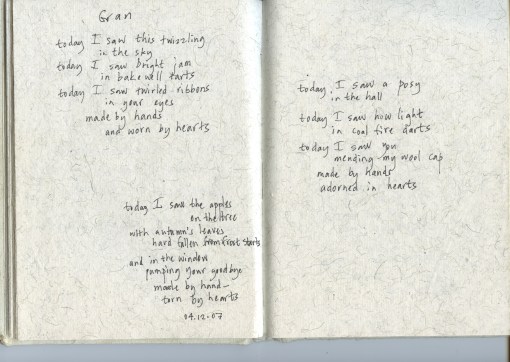 Gran
today I saw this twizzling
in the sky
today I saw bright jam
in bakewell tarts
today I saw twirled ribbons
in your eyes
made by hands
and worn by hearts
today I saw the apples
on the tree
with autumn's leaves
hard fallen from frost starts
and in the window
pumping your goodbye
made by hand—
torn by hearts
04.12.07
today I saw a posy
in the hall
today I saw how light
in coal fire darts
today I saw you
mending my wool cap
made by hands
adorned in hearts